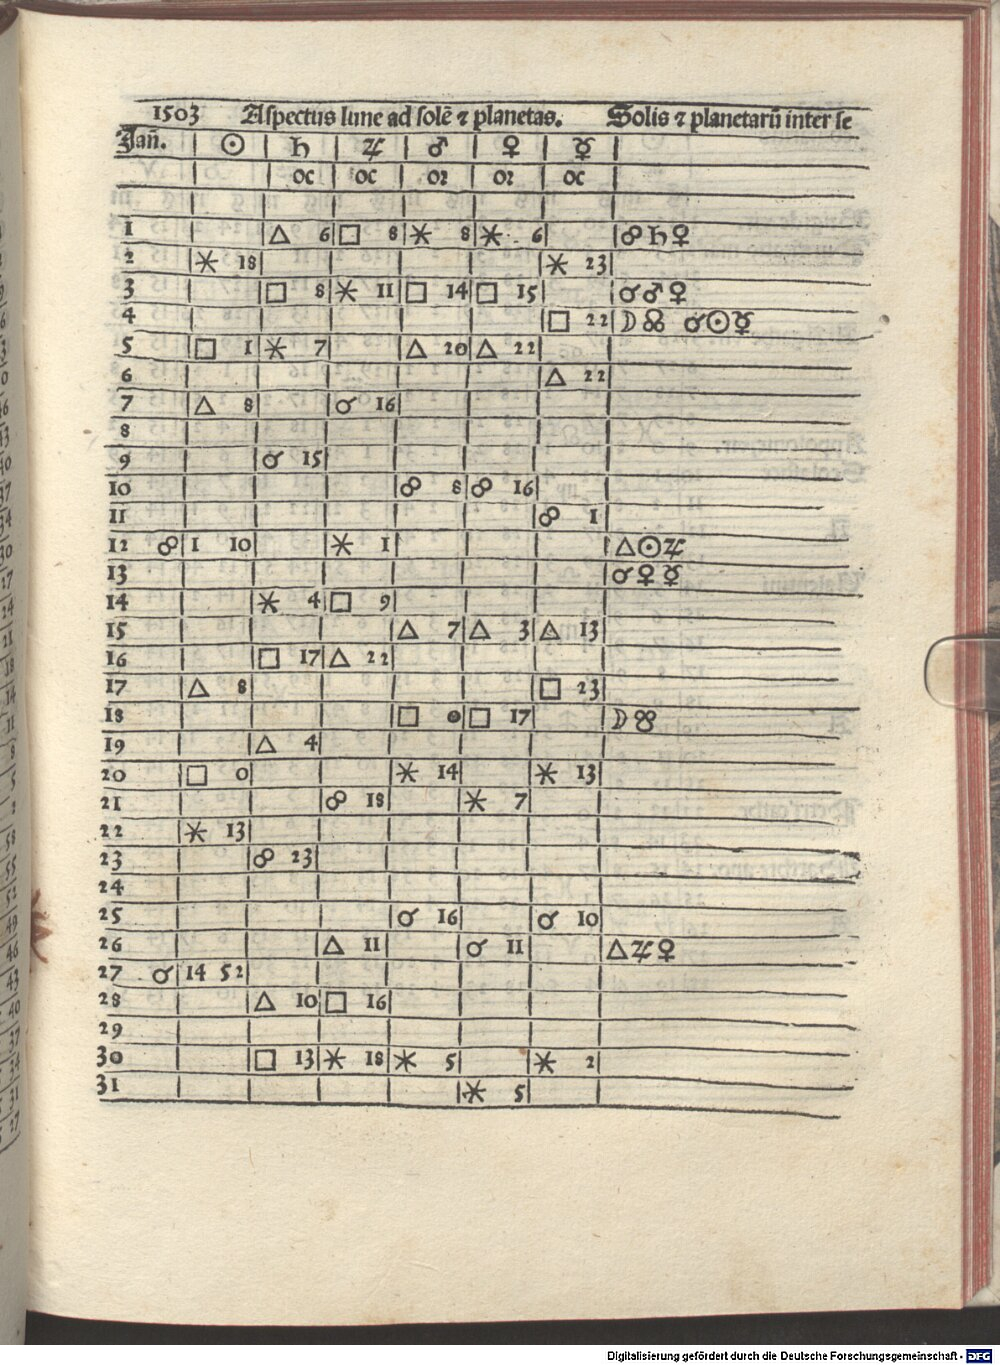 1503 Aspectus lune ad solē ⁊ planetas. Solis ⁊ planetarū inter se
Jañ. ☉ ♄ ♃ ♂ ♀ ☿
oc oc oꝛ oꝛ oc
1 △ 6 □ 8 ⚹ 8 ⚹ 6 ☍♄♀
2 ⚹ 18 ⚹ 23
3 □ 8 ⚹ 11 □ 14 □ 15 ☌♂♀
4 □ 22 ☽☊ ☌☉☿
5 □ 1 ⚹ 7 △ 20 △ 22
6 △ 22
7 △ 8 ☌ 16
8
9 ☌ 15
10 ☍ 8 ☍ 16
11 ☍ 1
12 ☍ 1 10 ⚹ 1 △☉♃
13 ☌♀☿
14 ⚹ 4 □ 9
15 △ 7 △ 3 △ 13
16 □ 17 △ 22
17 △ 8 □ 23
18 □ 0 □ 17 ☽☋
19 △ 4
20 □ 0 ⚹ 14 ⚹ 13
21 ☍ 18 ⚹ 7
22 ⚹ 13
23 ☍ 23
24
25 ☌ 16 ☌ 10
26 △ 11 ☌ 11 △♃♀
27 ☌ 14 52
28 △ 10 □ 16
29
30 □ 13 ⚹ 18 ⚹ 5 ⚹ 2
31 ⚹ 5
Digitalisierung gefördert durch die Deutsche Forschungsgemeinschaft - DFG